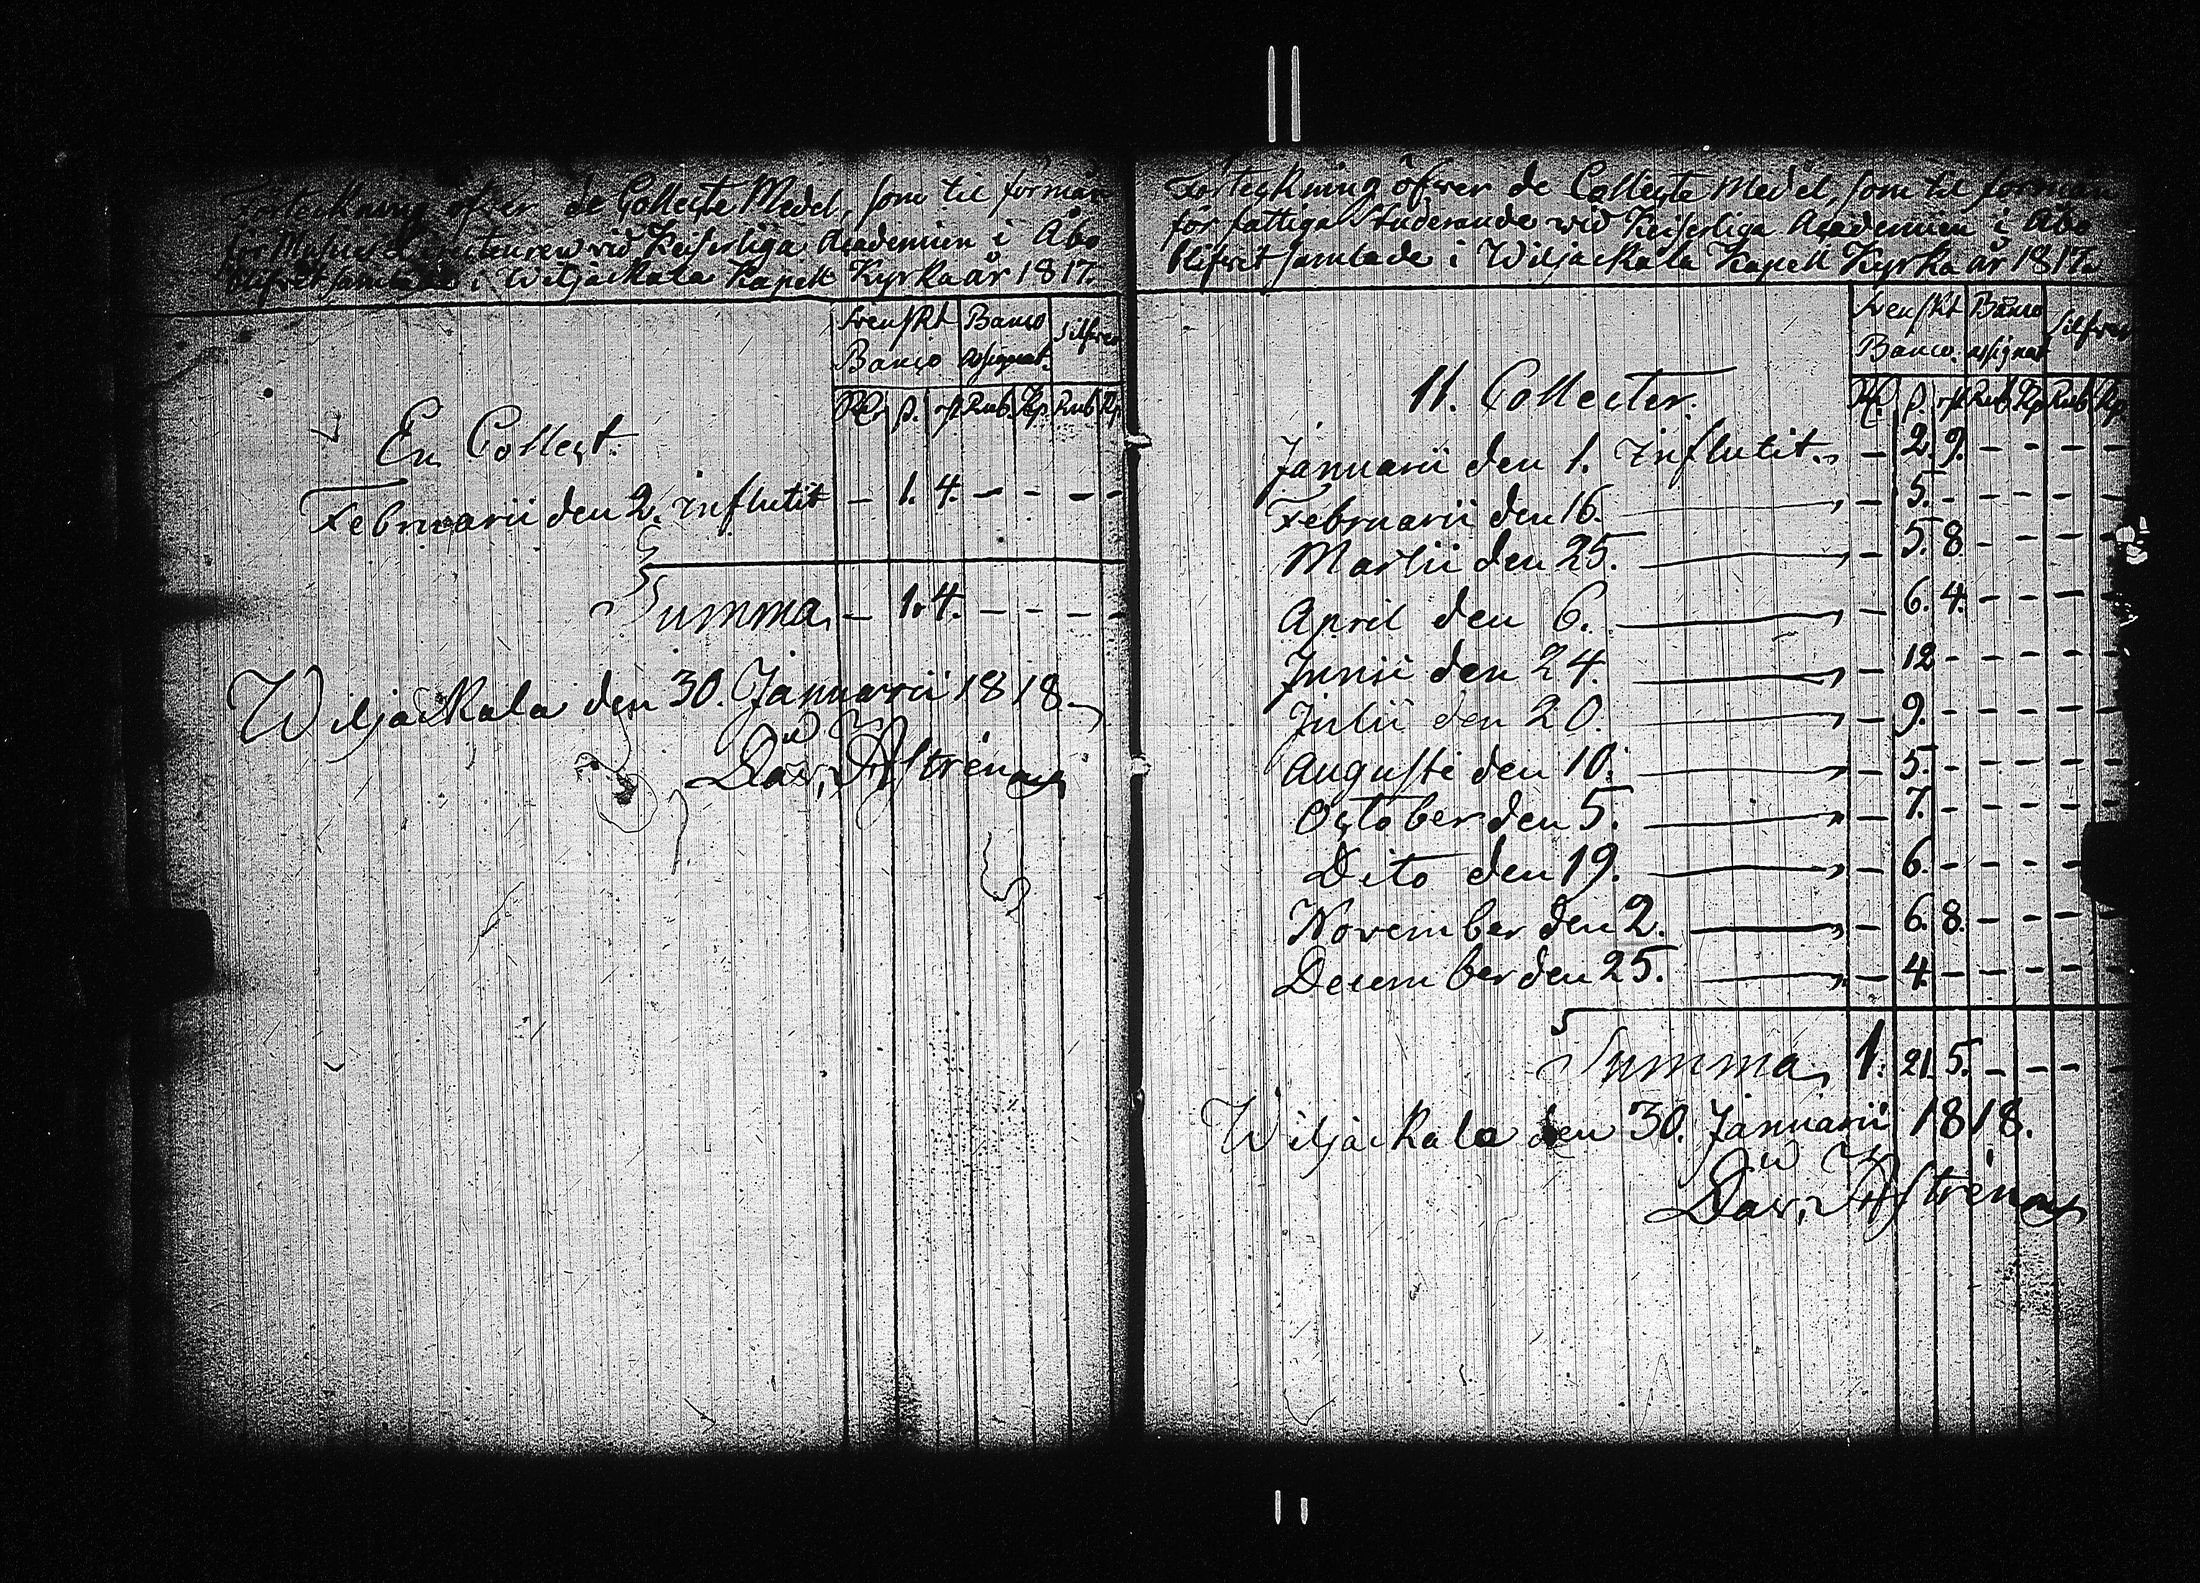 Förteckning öfver de Collecte Medel, som til förmån
för Musices wid Keiserliga Academien i Åbo
blifvit samlade i Wiljackala Kapell Kyrka år 1817.
Svenskt Banco Silfver
Banco assignat.
Rdr ß. rst Rub Kp Rub Kp
En Collect.
Februarii den 2. influtit — 1. 4. — — — —
Summa — 1. 4. — — — —
Wiljackala den 30. Januarii 1818.
Dav. Astrén
Förteckning öfver de Collecte Medel, som til förmån
för fattiga Studerande wid Keiserliga Academien i Åbo
blifvit samlade i Wiljackala Kapell Kyrka år 1817.
Svenskt Banco Silfver
Banco. assignat
Rdr ß. rst Rub Kp Rub Kp
11. Collecter.
Januarii den 1. influtit. — 2. 9. — — — —
Februarii den 16. — 5. — — — — —
Martii den 25. — 5. 8. — — — —
April den 6. — 6. 4. — — — —
Junii den 24. — 12 — — — — —
Julii den 20. — 9. — — — — —
Augusti den 10. — 5. — — — — —
October den 5. — 7. — — — — —
Dito den 19. — 6. — — — —
November den 2. — 6. 8. — — — —
December den 25. — 4. — — — — —
Summa 1. 21. 5. — — — —
Wiljackala den 30. Januarii 1818.
Dav. Astrén